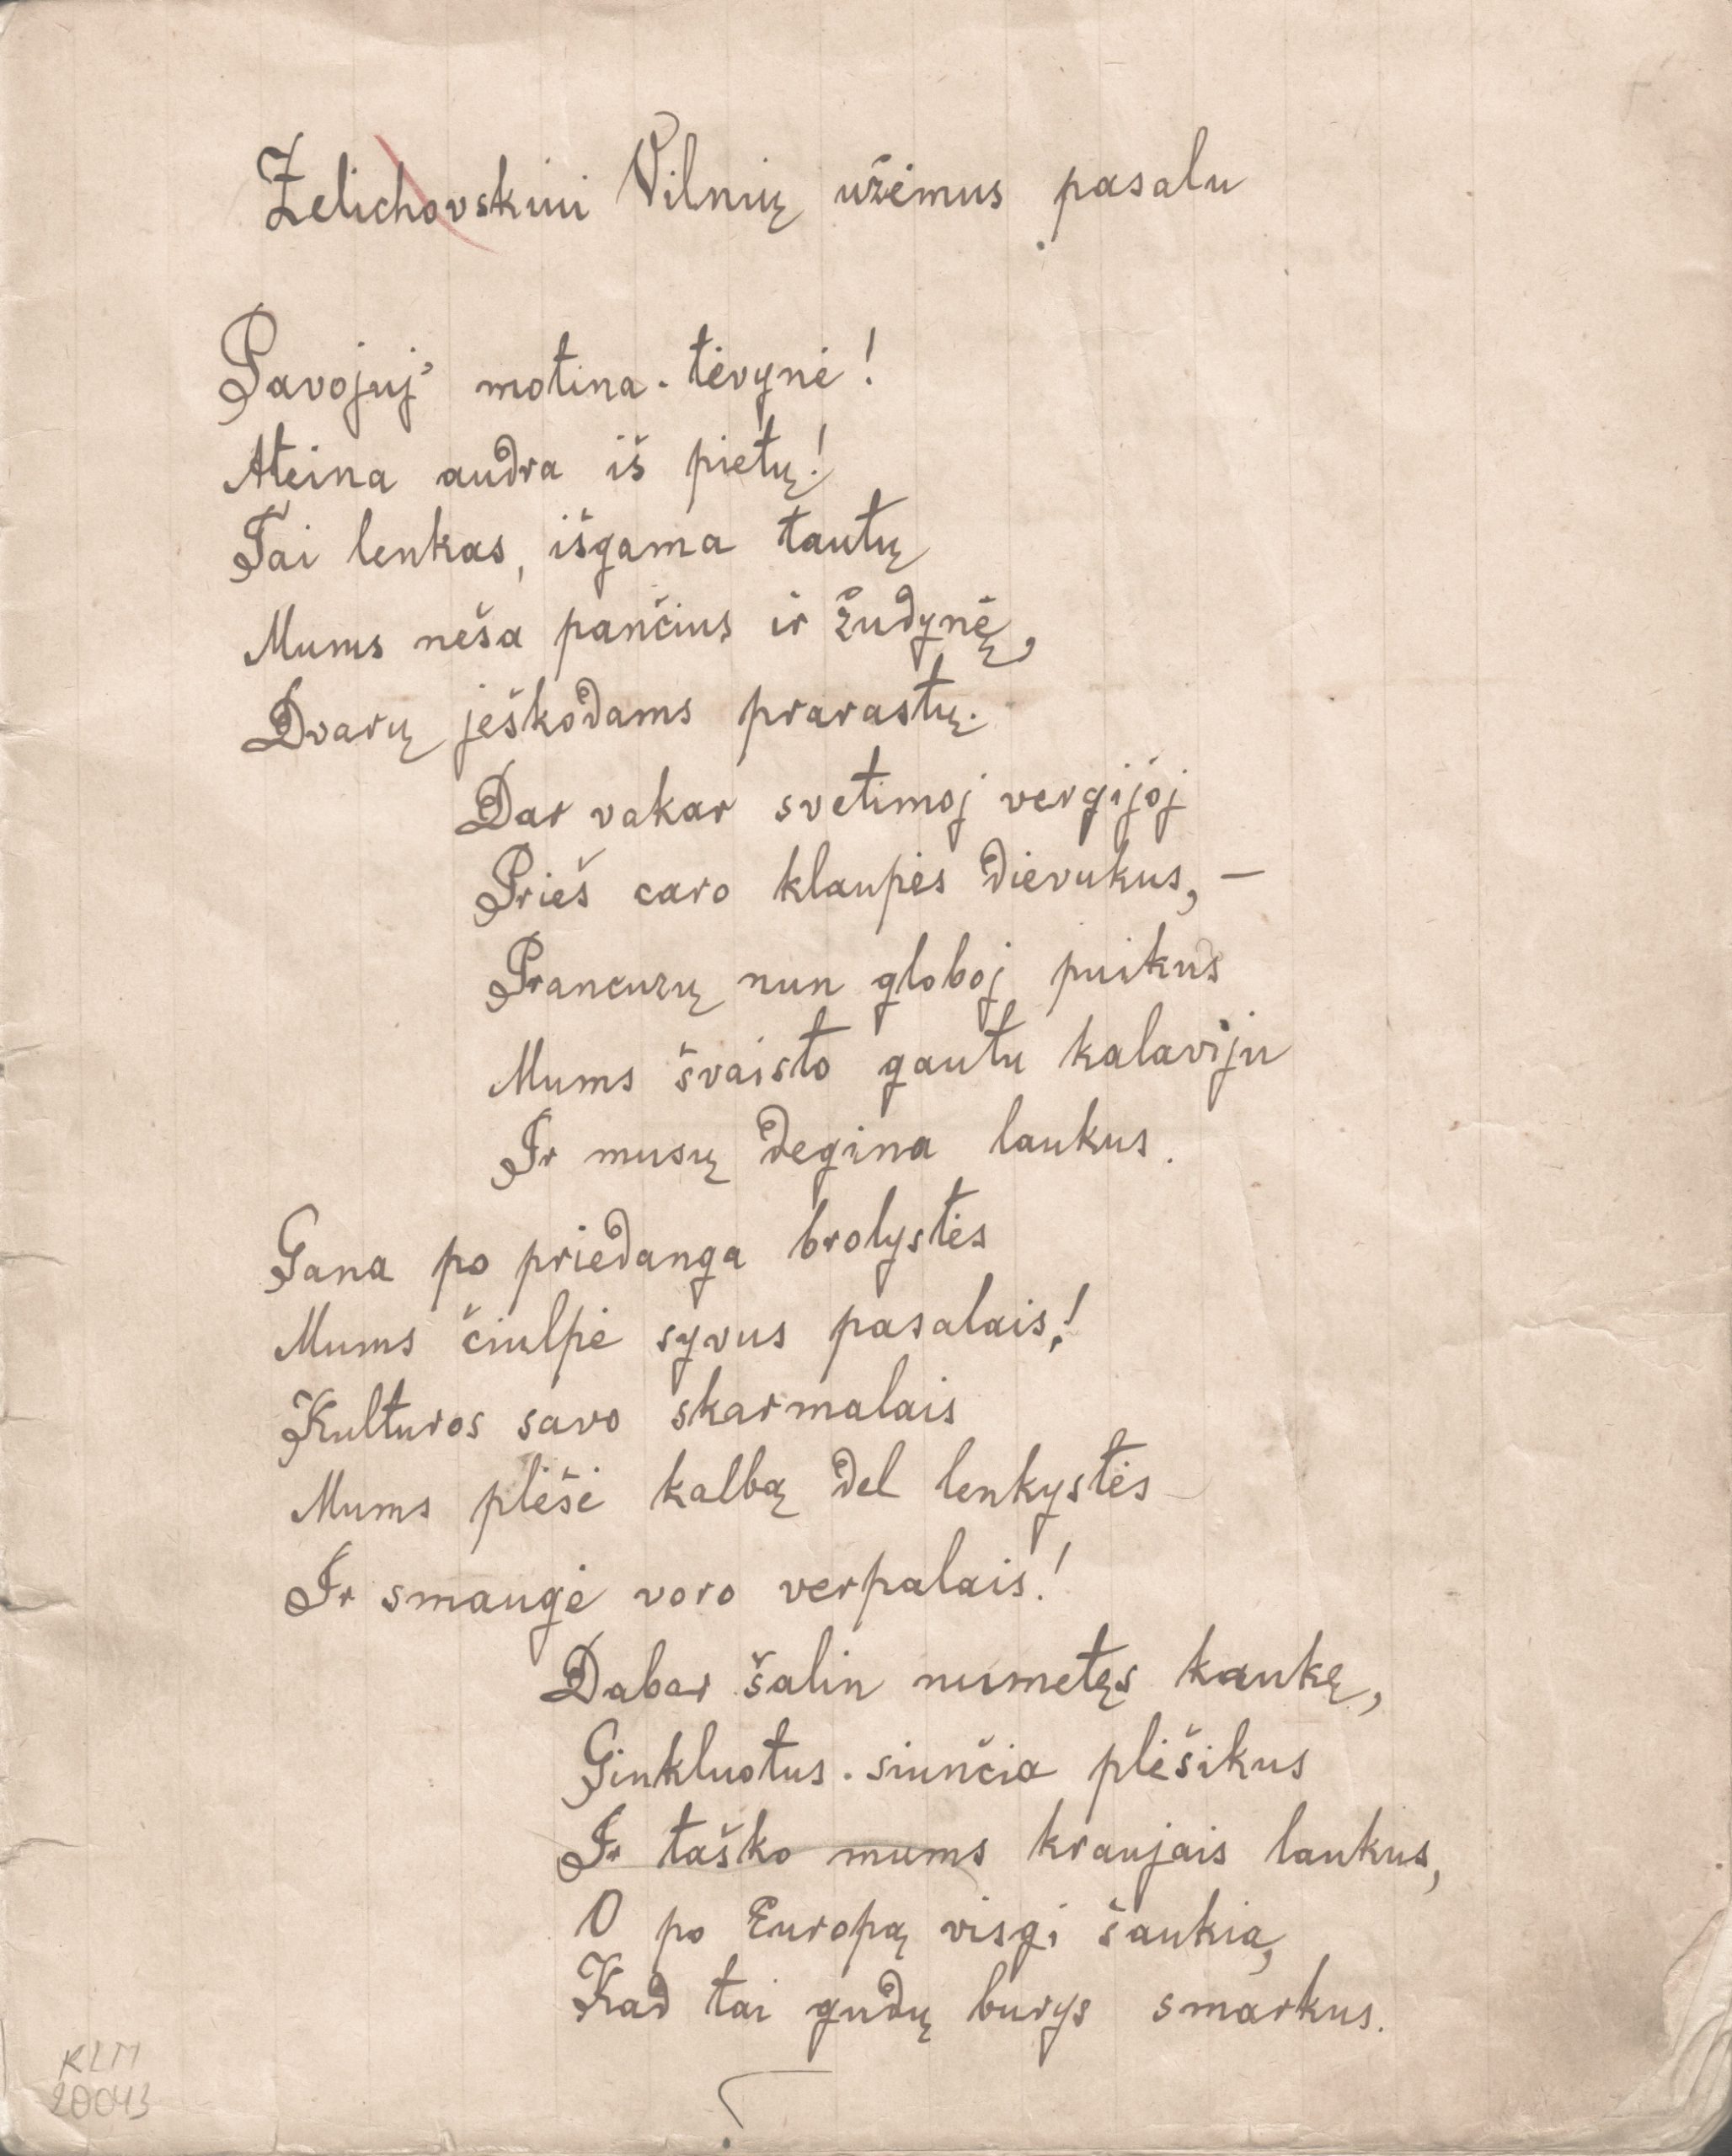 Želichovskiui Vilnių užėmus pasalu
Pavojuj' motina-tėvynė!
Ateina audra iš pietų!
Tai lenkas, išgama tautų
Mums neša pančius ir žudynę,
Dvarų ješkodams prarastų.
Dar vakar svetimoj vergijoj
Prieš caro klaupės dievukus, –
Prancuzų nun globoj puikus
Mums švaisto gautu kalaviju
Ir musų degina laukus.
Gana po priedanga brolystės
Mums čiulpė syvus pasalais!
Kulturos savo skarmalais
Mums plėšė kalbą del lenkystės
Ir smaugė voro verpalais!
Dabar šalin numetęs kaukę,
Ginkluotus siunčia plėšikus
Ir taško mums kraujais laukus,
O po Europą visgi šaukia,
Kad tai gudų burys smarkus.
KLM
20043